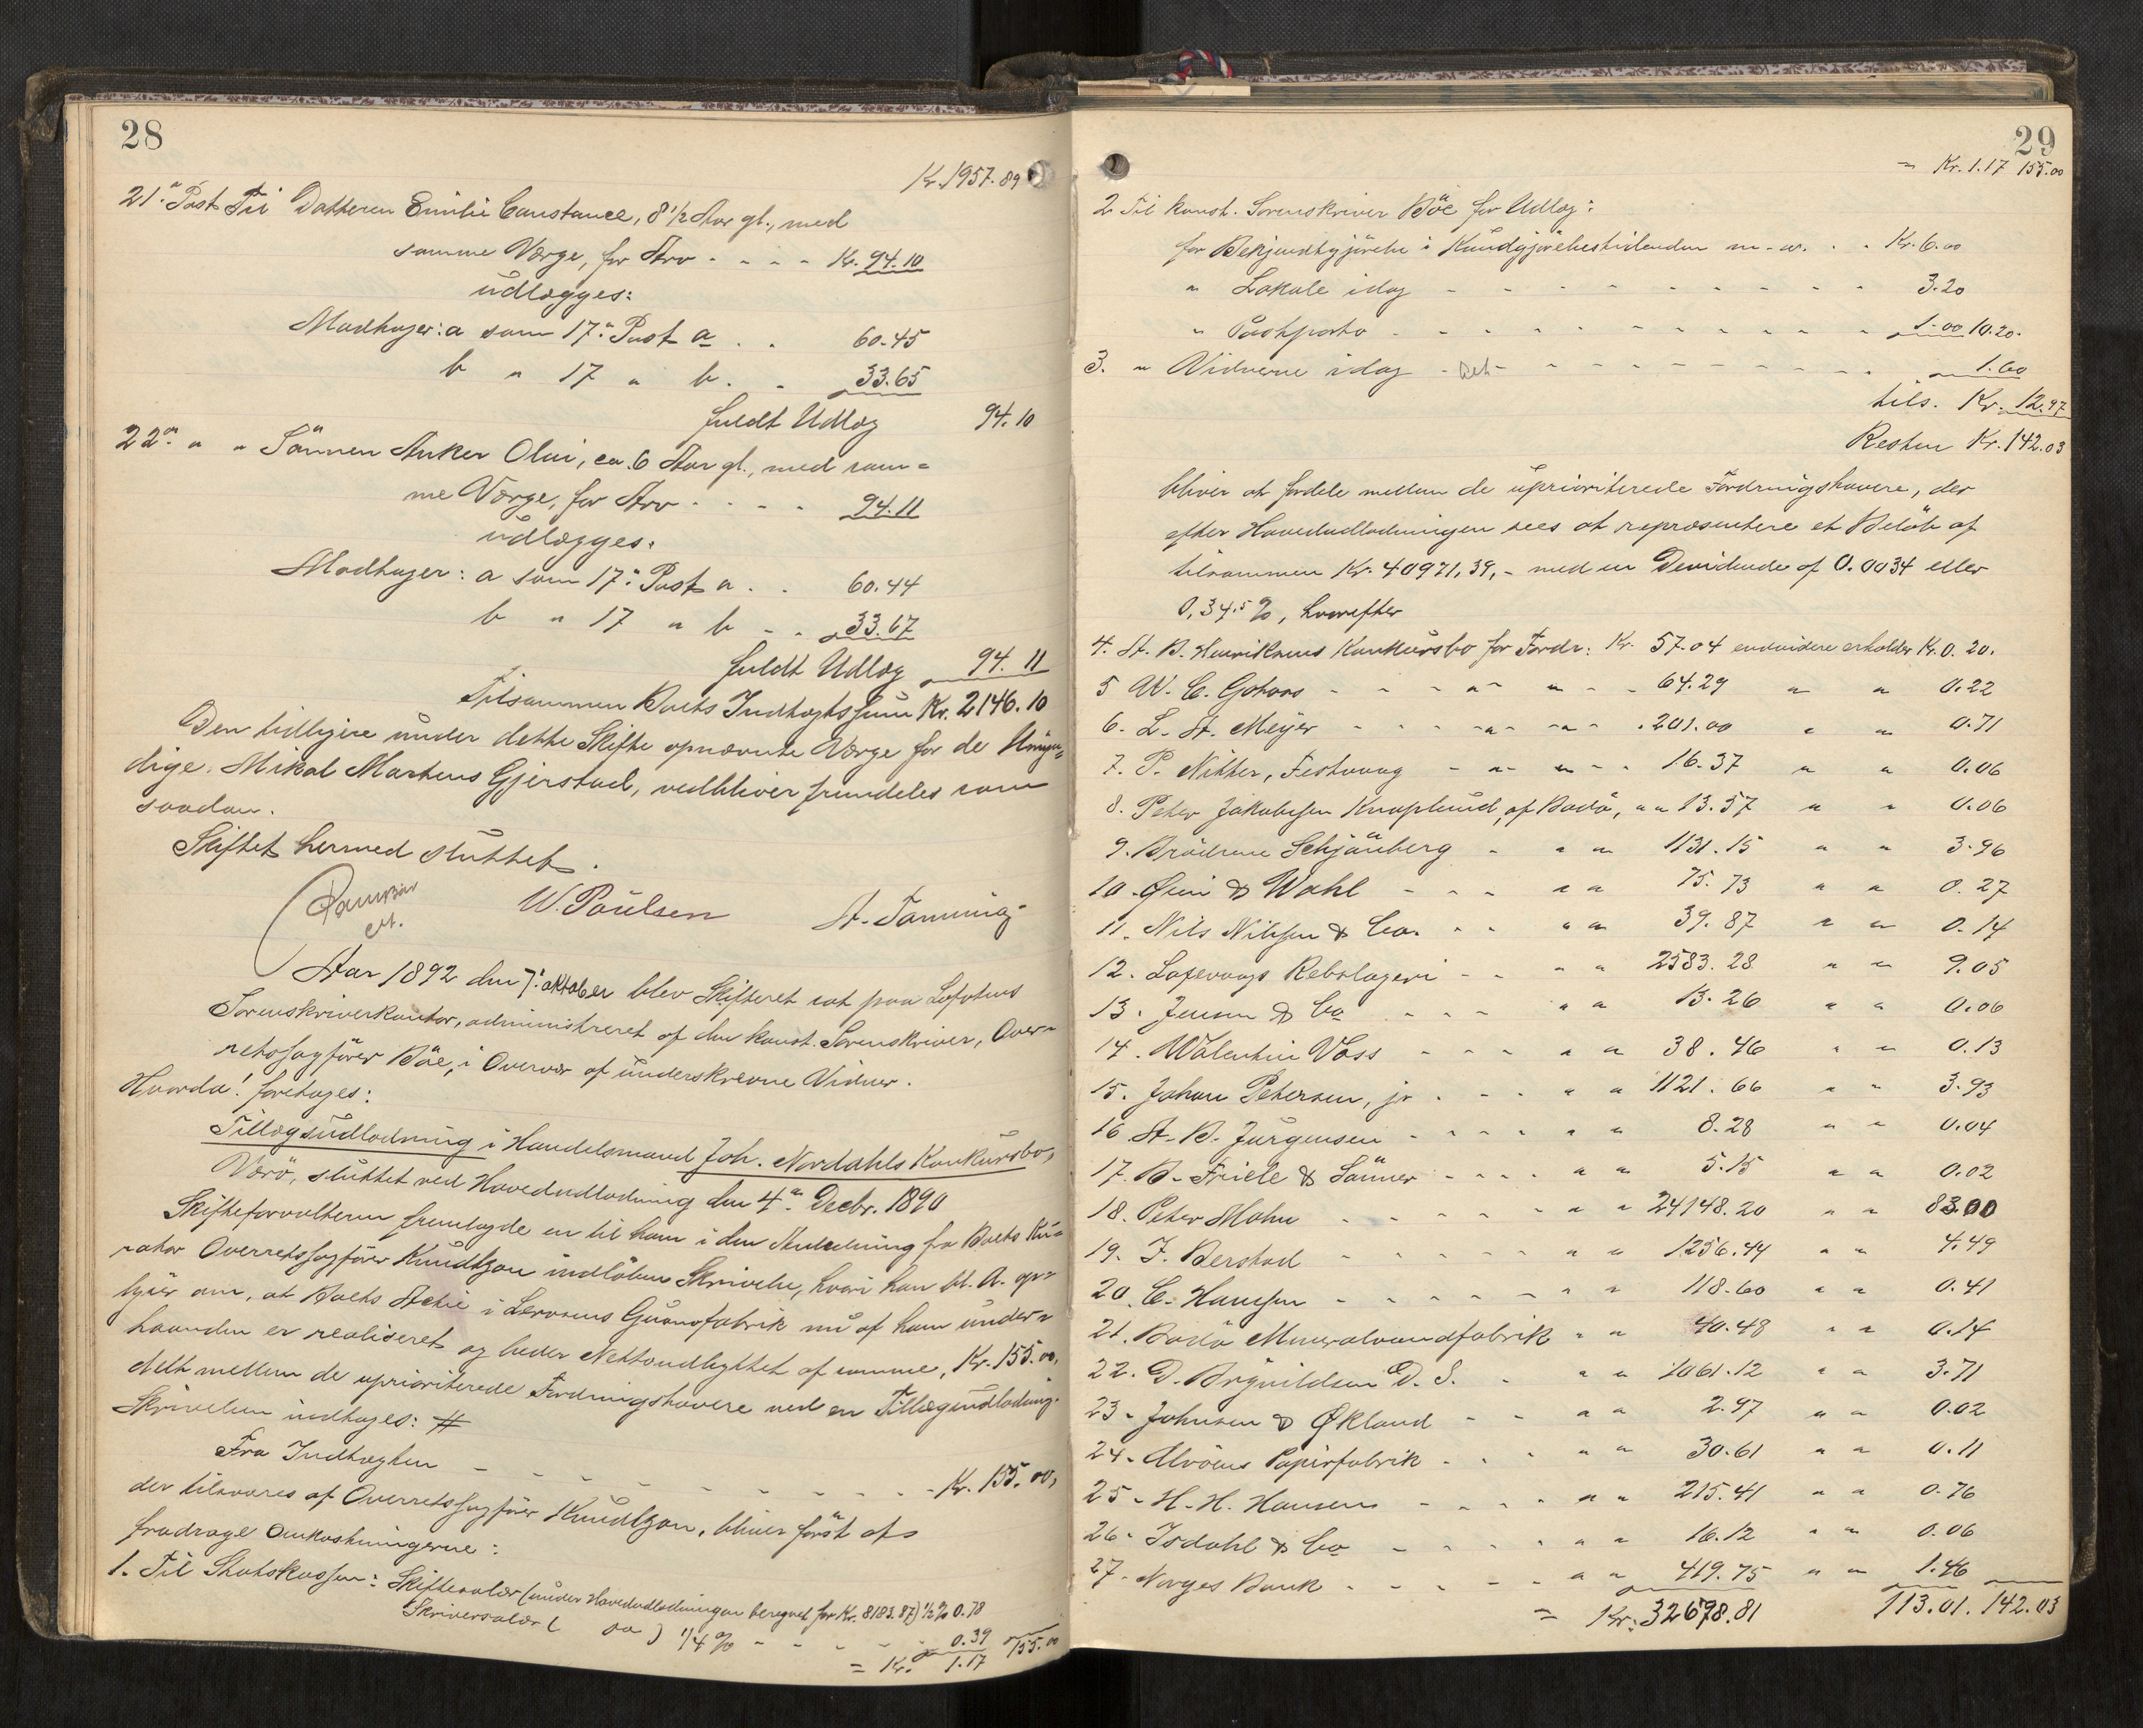 28
Kr. 1957.89
21de Post Til Datteren Emilie Constance, 8½ Aar gl., med
samme Værge, for Arv - - - - Kr. 94.10
udlægges:
Modtager: a som 17de Post a . . 60.45
b " 17 " b. - 33.65
fuldt Udlæg 94.10
22de " " Sönnen Anker Olui, ca. 6 Aar gl., med sam=
me Værge, for Arv - - - - 94.11
udlægges:
Modtager: a som 17de Post a . . 60.44
b " 17 " b - - 33.67
fuldt Udlæg 94.11
Tilsammen Boets Indtægtssum Kr. 2146.10
Den tidligere under dette Skifte opnævnte Værge for de Umyn=
dige, Mikal Martens Gjerstad, vedbliver fremdeles som
saadan.
Skiftet hermed sluttet.
W. Poulsen A. Tanning
Aar 1892 den 7de oktober blev Skifteret sat paa Lofotens
Sorenskriverkontor, administreret af den konst. Sorenskriver, Over=
retssagfører Böe, i Overvær af underskrevne Vidner.
Hvorda! foretoges:
Tillægsudlodning i Handelsmand Joh. Nordahls Konkursbo,
Værö, sluttet ved Hovedudlodning den 4de Decbr. 1890
Skifteforvalteren fremlagde en til ham i den Anledning fra Boets Ku=
rator Overretssagförer Knudtzon indlöben Skrivelse, hvori han bl. A. op=
lyser om, at Boets Actie i Lervosens Guanofabrik nu af ham under=
haanden er realiseret og beder Nettoudbyttet af samme, Kr. 155.00,
delt mellem de uprioriterede Fordringshavere ved en Tillægsudlodning.
Skrivelsen indtages: #
Fra Indtægten - - - - - - - - - Kr. 155.00,
der tilsvares af Overretssagförer Knudtzon, bliver först at
fradrage Omkostningerne:
1. Til Statskassen: Skiftesalær (under Hovedudlodningen beregnet for Kr. 8183.87) ½% 0.78
Skriversalær ( do ) 1/4 % - - - - - 0.39 155.00
= Kr. 1.17
29
= Kr. 1.17 155.00
2 Til konst. Sorenskriver Böe for Udlæg:
for Bekjendtgjörelse i Kundgjörelsestidenden m. v. . . Kr. 6.00
" Lokale idag - - - - - - - - - 3.20
" Postporto - - - - - - - - - 1.00 10.20.
3. " Vidnerne idag - - - - - - - - - 1.60
tils. Kr. 12.97
Resten Kr. 142.03
bliver at fordele mellem de uprioriterede Fordringshavere, der
efter Hovedudlodningen sees at repræsentere et Belöb af
tilsammen Kr. 40971,39,- med en Devidende af 0.0034 eller
0,34.5 %, hvorefter
4. A. B. Henriksens Konkursbo for Fordr: Kr. 57.04 endvidere erholder Kr. 0.20.
5 W. C. Gotaas - - - " " - - 64.29 " " 0.22
6. L. A. Meyer - - - - " - " - . 201.00 " " 0.71
7. P. Nitter, Festvaag - " - " - - 16.37 " " 0.06
8. Peter Jakobsen Knaplund, af Bodö, " " 13.57 " " 0.06
9. Brödrene Schjönberg - " " 1131.15 " " 3.96
10. Quin & Wahl - - - " " 75.73 " " 0.27
11. Nils Nilssen & Co. - - " " 39.87 " " 0.14
12. Laxevaags Rebslageri - - " " 2583.28 " " 9.05
13. Jensen & Co - - - " " 13.26 " " 0.06
14. Valentin Voss - - - " " 38.46 " " 0.13
15. Johan Petersen, jr - - - " " 1121.66 " " 3.93
16 A. B. Jurgensen - - - - " " 8.28 " " 0.04
17. B. Friele & Sönner - - - " " 5.15 " " 0.02
18. Peter Mohn - - - - - " " 24148.20 " " 83.00
19. J. Berstad - - - - - " " 1256.44 " " 4.49
20. C. Hansen - - - - - " " 118.60 " " 0.41
21. Bodö Mineralvandfabrik " " 40.48 " " 0.14
22. D. Brynildsen D. S. - " " 1061.12 " " 3.71
23. Johnsen & Økland - - " " 2.97 " " 0.02
24. Alvöens Papirfabrik - - " " 30.61 " " 0.11
25. H. H. Hansen - - - - " " 215.41 " " 0.76
26. Isdahl & Co - - - - " " 16.12 " " 0.06
27. Norges Bank - - - - - " " 419.75 " " 1.46
= Kr. 32678.81 113.01. 142.03